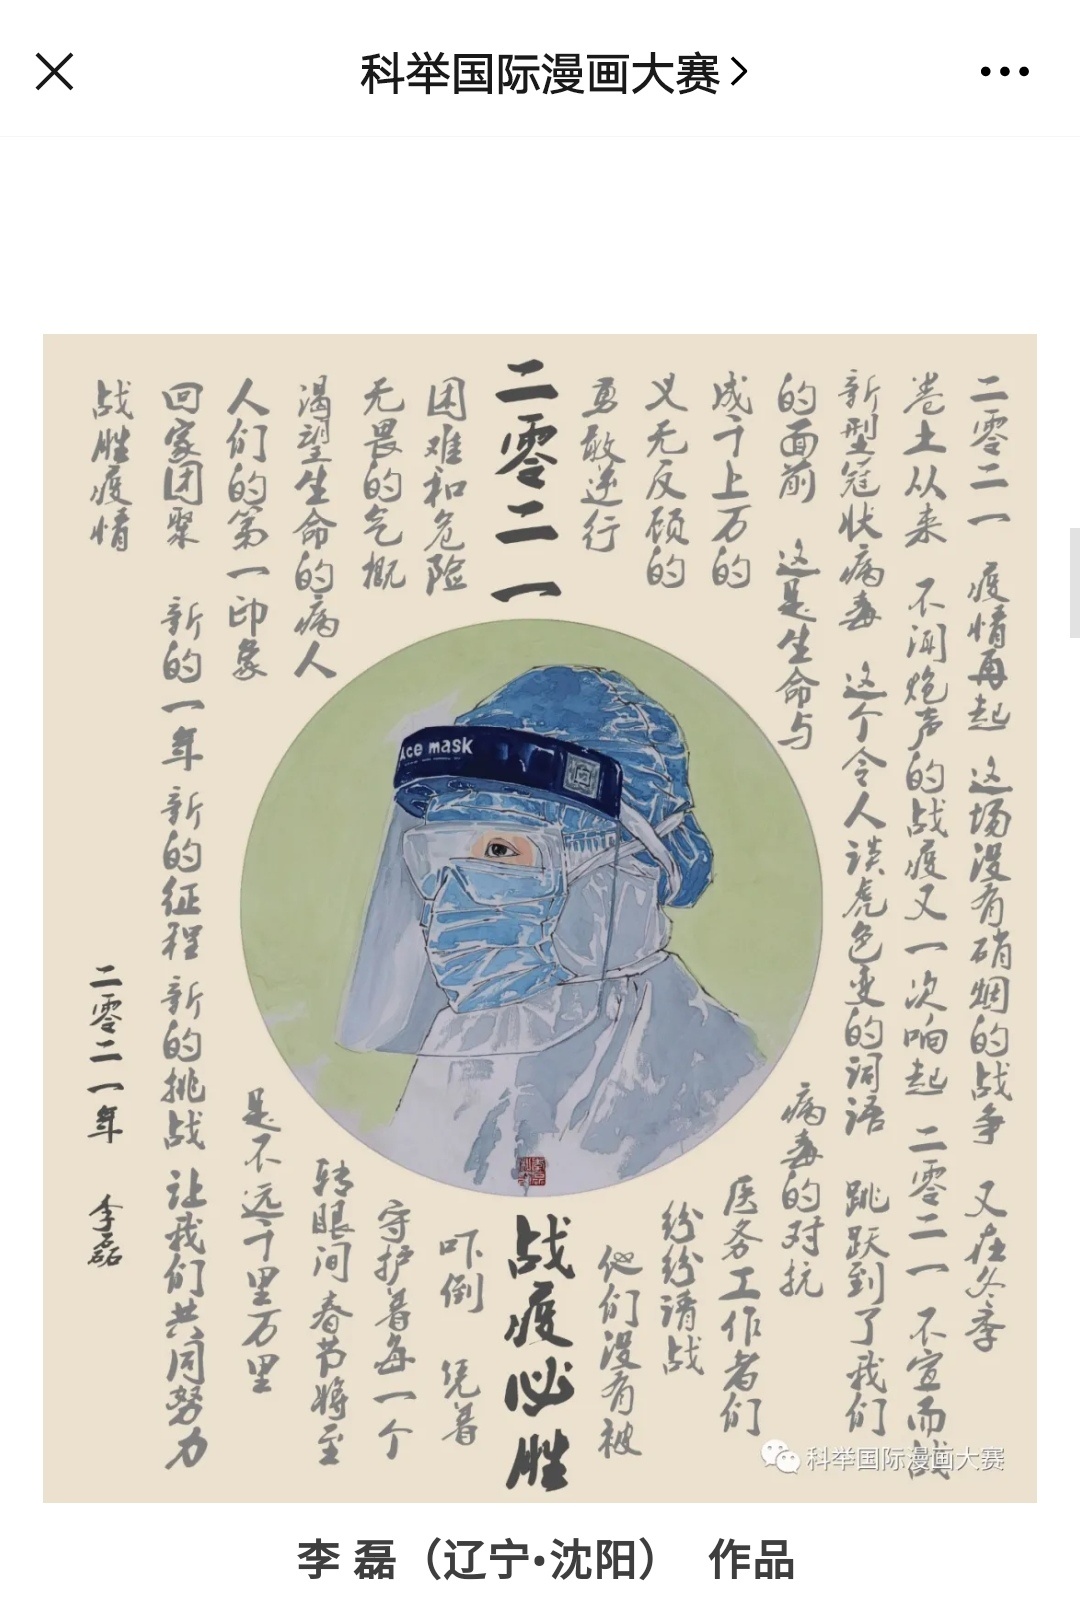 科举国际漫画大赛
二零二一 疫情再起 这场没有硝烟的战争 又在冬季
卷土从来 不闻炮声的战疫又一次响起 二零二一 不宣而战
新型冠状病毒 这个令人谈虎色变的词语 跳跃到了我们
的面前 这是生命与 病毒的对抗
成千上万的 医务工作者们
义无反顾的 纷纷请战
勇敢逆行 他们没有被
二零二一 战疫必胜
困难和危险 吓倒 凭着
无畏的气概 守护着每一个
渴望生命的病人 转眼间春节将至
人们的第一印象 是不远千里万里
回家团聚 新的一年 新的征程 新的挑战 让我们共同努力
战胜疫情
二零二一年 李磊
ace mask
科举国际漫画大赛
李 磊（辽宁·沈阳） 作品